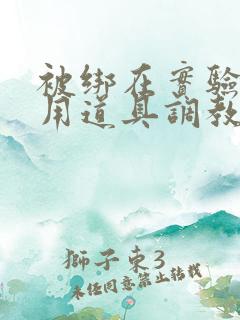 被绑在實驗
用道具調教
獅子東3
未任同意禁止转载